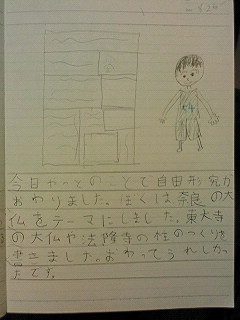 今日やっとのことで自由形究が
おわりました。ぼくは奈良の大
仏をテーマにしました。東大寺
の大仏や法隆寺の柱のつくりを
書きました。おわってうれしかっ
たです。